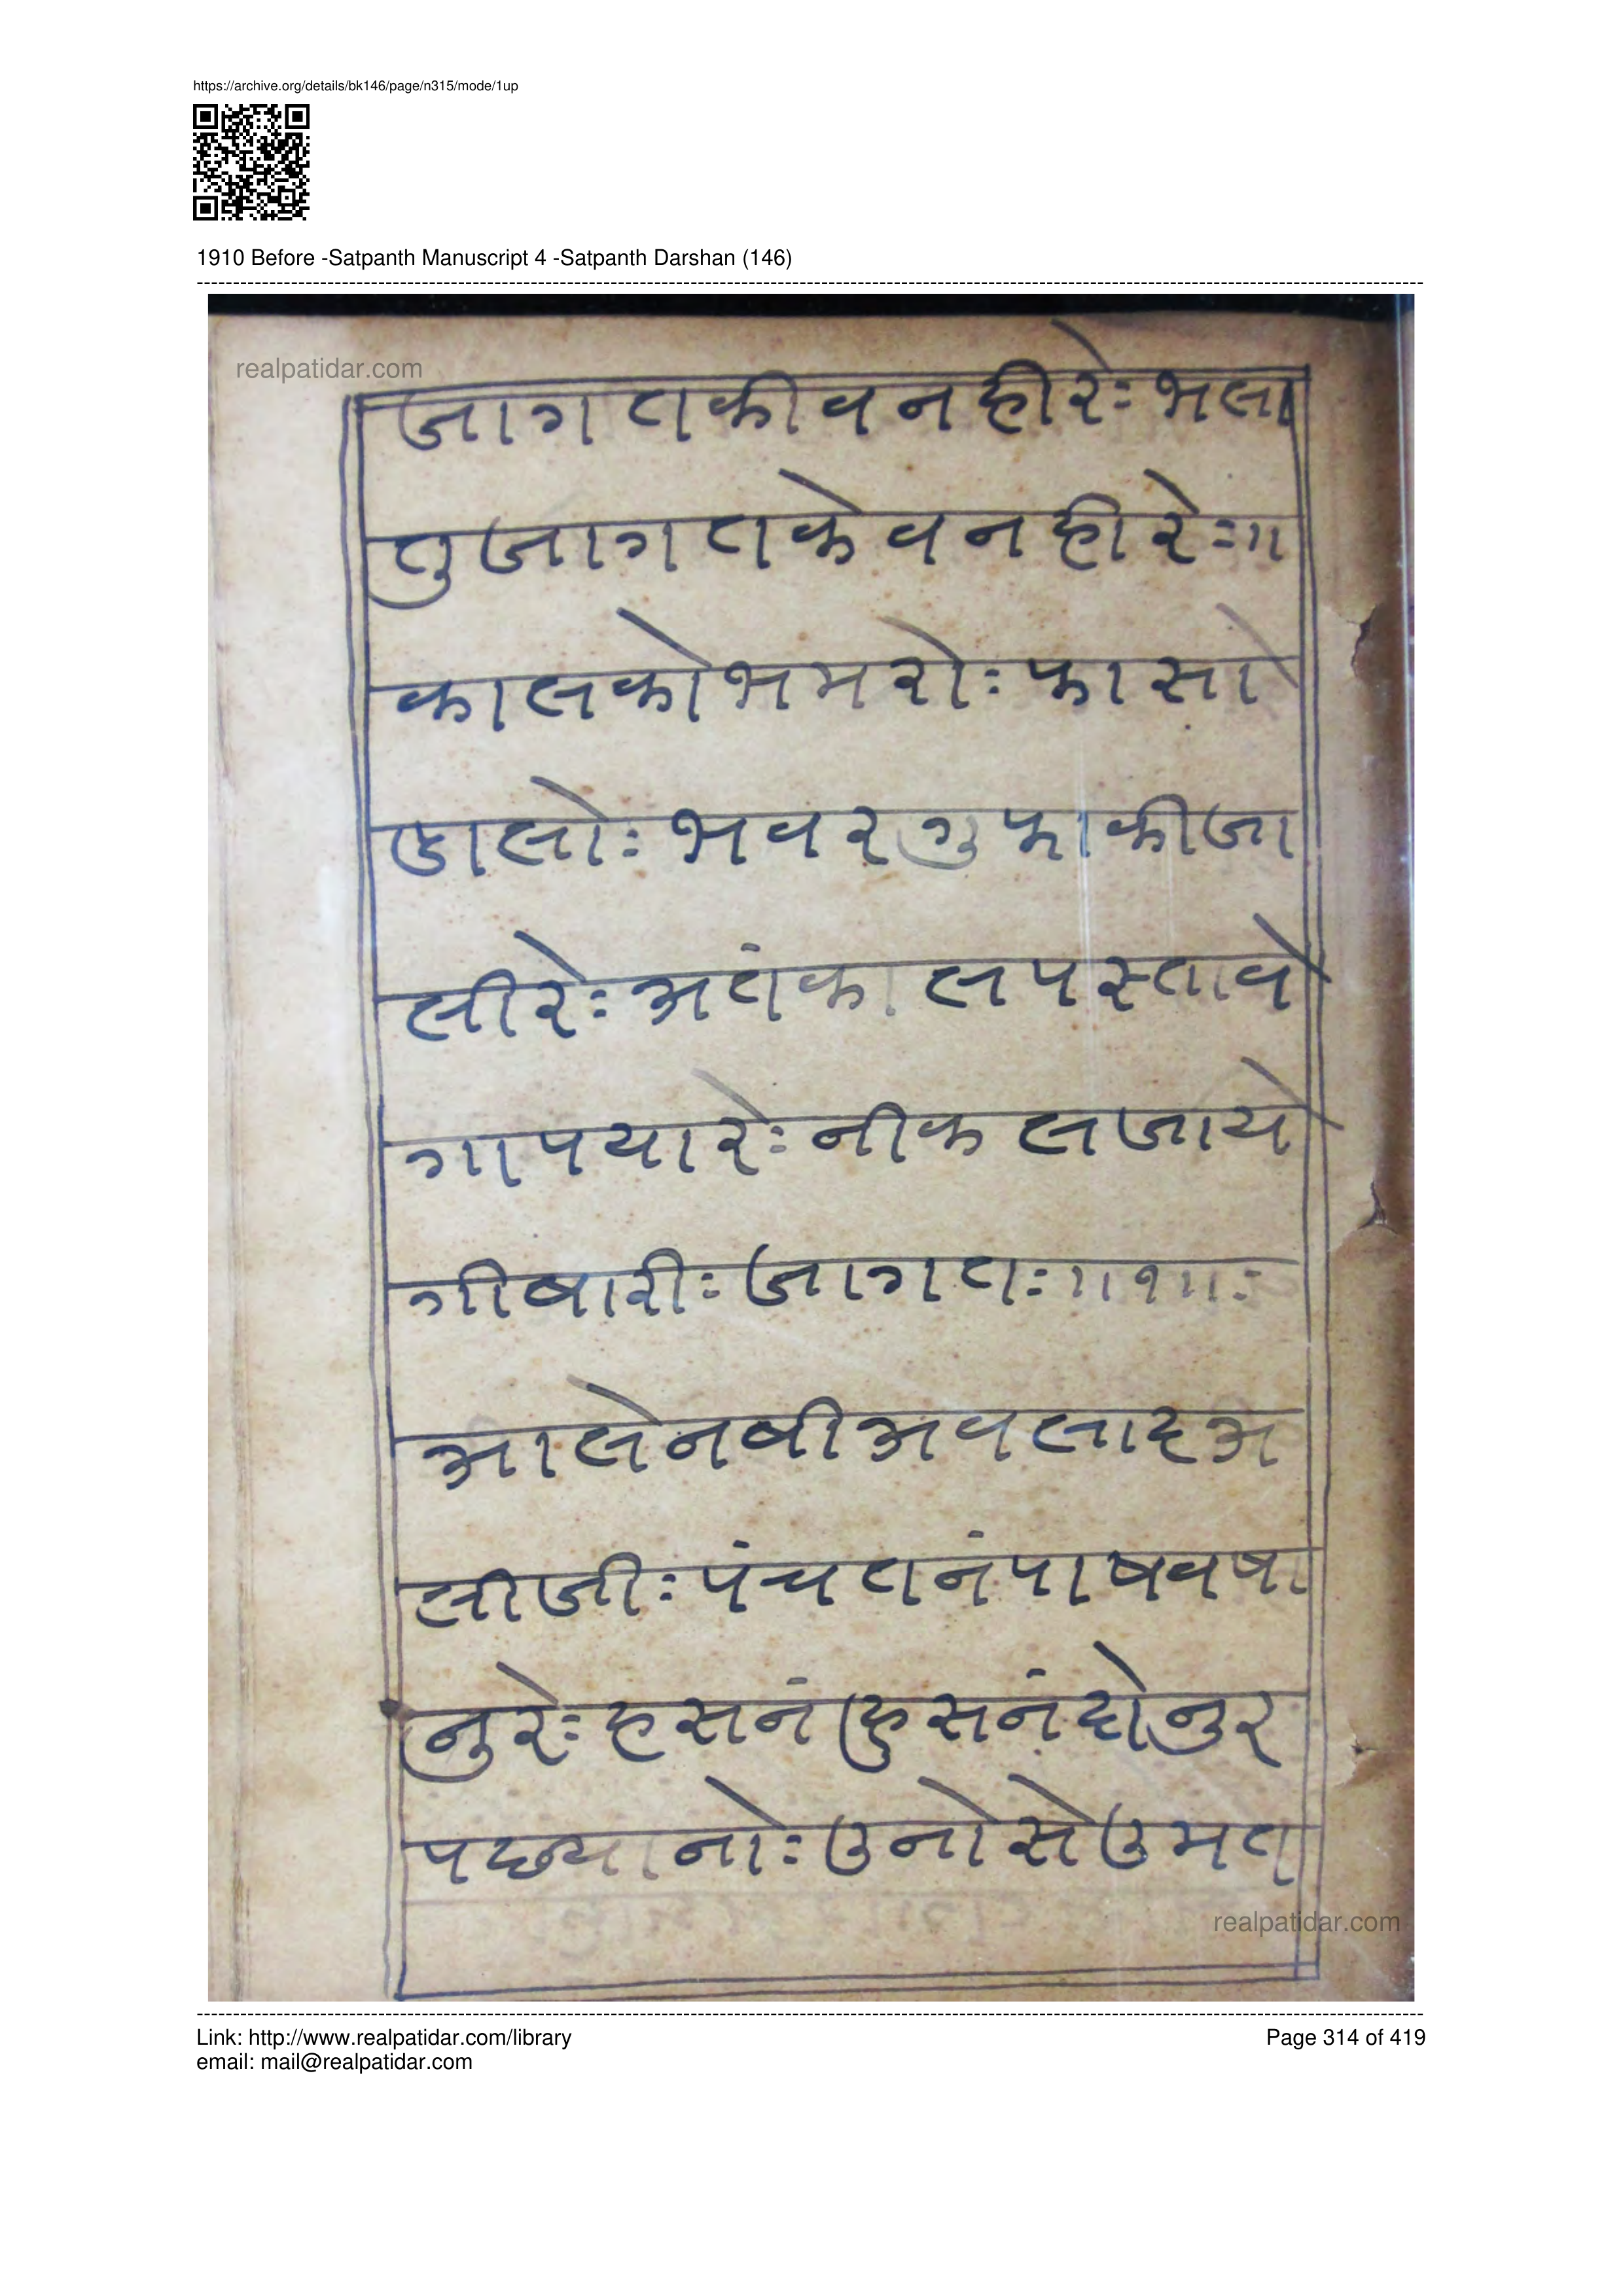 https://archive.org/details/bk146/page/n315/mode/1up
1910 Before -Satpanth Manuscript 4 -Satpanth Darshan (146)
realpatidar.com
जागतकीवनहीरेः भला
तुजागतकेवनहीरेः॥
कालकोभमरोः फासो
डालोः भवरगुफाकीजा
लीरेः अतंकालपस्तावे
गापयारेः नीकलजाये
गीबारीः जागतः॥१॥ः
आलेनबीअवलादअ
लीजीः पंचतनंपाषवषा
नुरेः हसनंहुसनंदोनुर
पछ्यानोः उनोसेउमत
realpatidar.com
Link: http://www.realpatidar.com/library
Page 314 of 419
email: mail@realpatidar.com